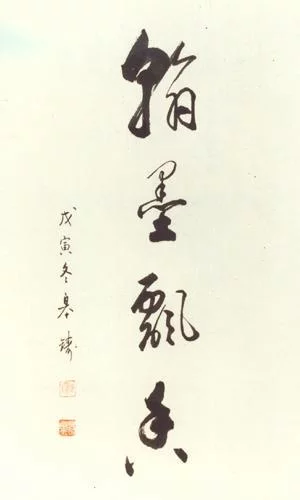 翰墨飘香
戊寅冬